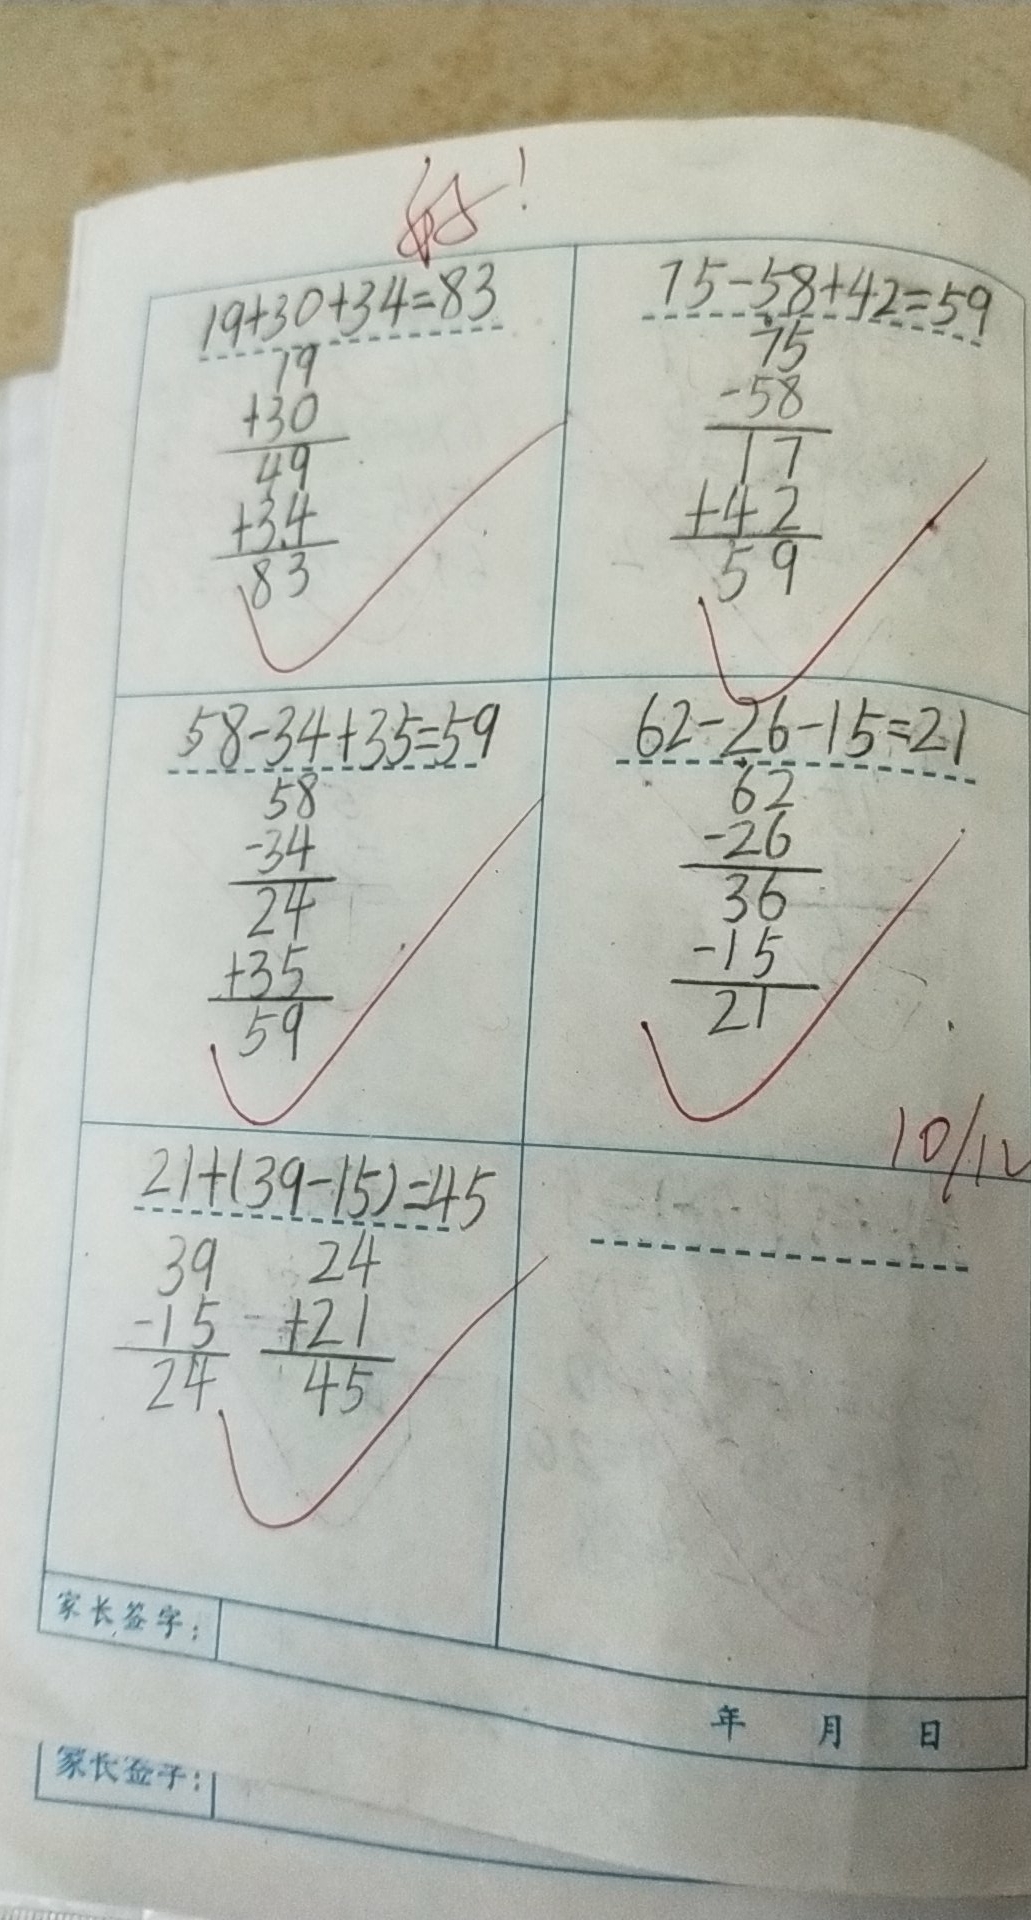 好!
19+30+34=83
19
+30
49
+34
83
75-58+42=59
75
-58
17
+42
59
58-34+35=59
58
-34
24
+35
59
62-26-15=21
62
-26
36
-15
21
10/12
21+(39-15)=45
39 24
-15 +21
24 45
家长签字:
年 月 日
家长签字: